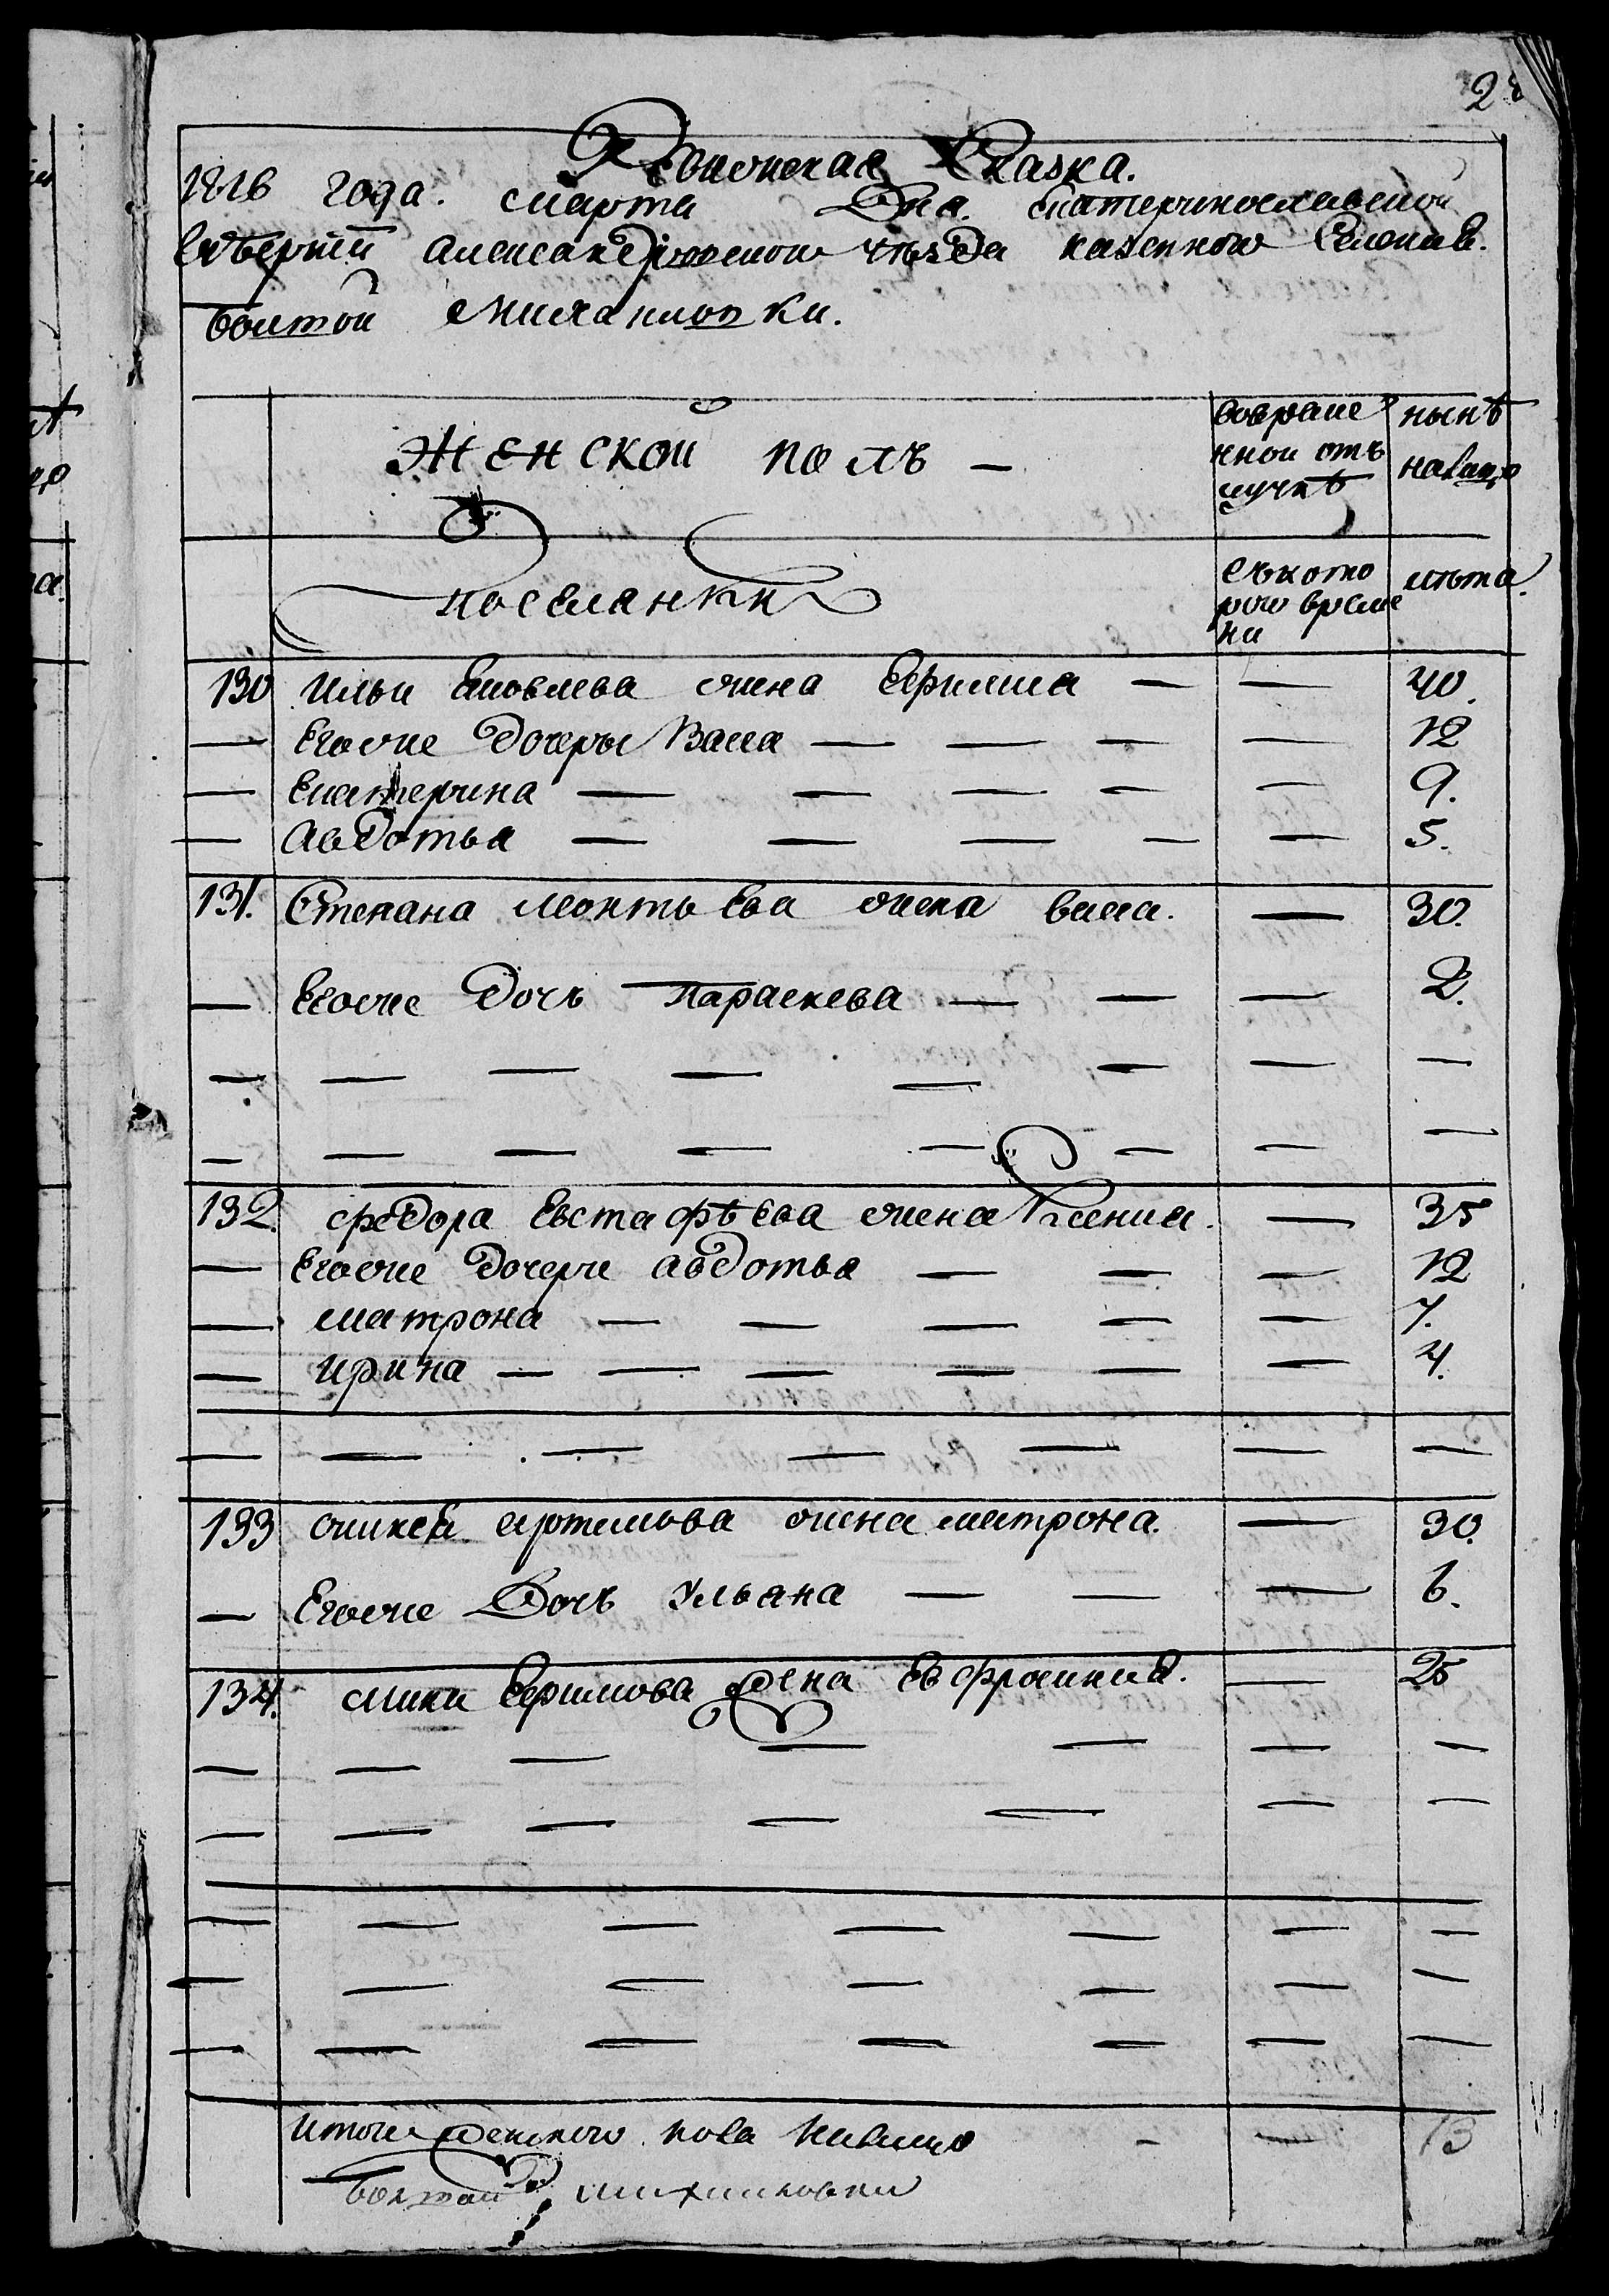 28
Ревизская Сказка.
1816 года. марта Дня. Екатеринославской
Губернии Александровскою уезда казенной Селения.
болтой Михаиловки.
Женской полъ —
вовреме
нной отъ
лучкѣ
нынѣ
налицо
поселянки
съкото
рого време
ни
лѣта.
130 Ильи Яковлева жена Ефимия — — 40.
— Егоже дочеры Васса — — — — 12
— Екатерина — — — — — 9.
— Авдотья — — — — — 5.
131. Степана Леонтьева жена васса. — 30.
— Егоже Дочь Параскева — — — 2.
— — — — — — — —
— — — — — — — —
132. Федора Евстафѣева жена Ксения. — 35
— Егоже дочери авдотья — — — 12
— матрона — — — — — 7.
— Ирина — — — — — — 4.
— — — — — — —
133 Аникея артемова жена матрона. — 30.
— Егоже Дочь Ульяна — — — 6.
134. Ефимова жена Евфросиния. — 25
— — — — — — —
— — — — — — —
— — — — — — —
— — — — — — —
— — — — — — —
Итого женского пола налицо — — 13
болтой михаиловки